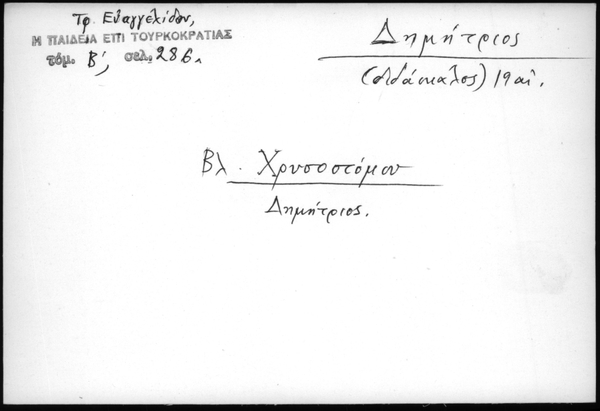 Τρ. Εὐαγγελίδου,
Η ΠΑΙΔΕΙΑ ΕΠΙ ΤΟΥΡΚΟΚΡΑΤΙΑΣ
τόμ. Β΄, σελ. 286.
Δημήτριος
(διδάσκαλος) 19 αἰ.
Βλ. Χρυσοστόμου
Δημήτριος.